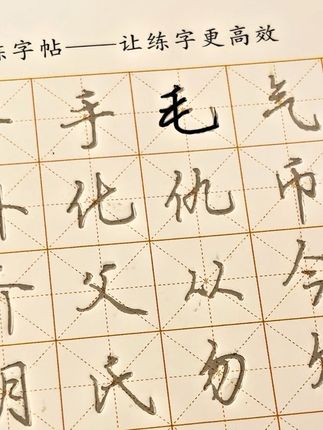 练字帖——让练字更高效
手毛气
化仇币
父从今
氏勿